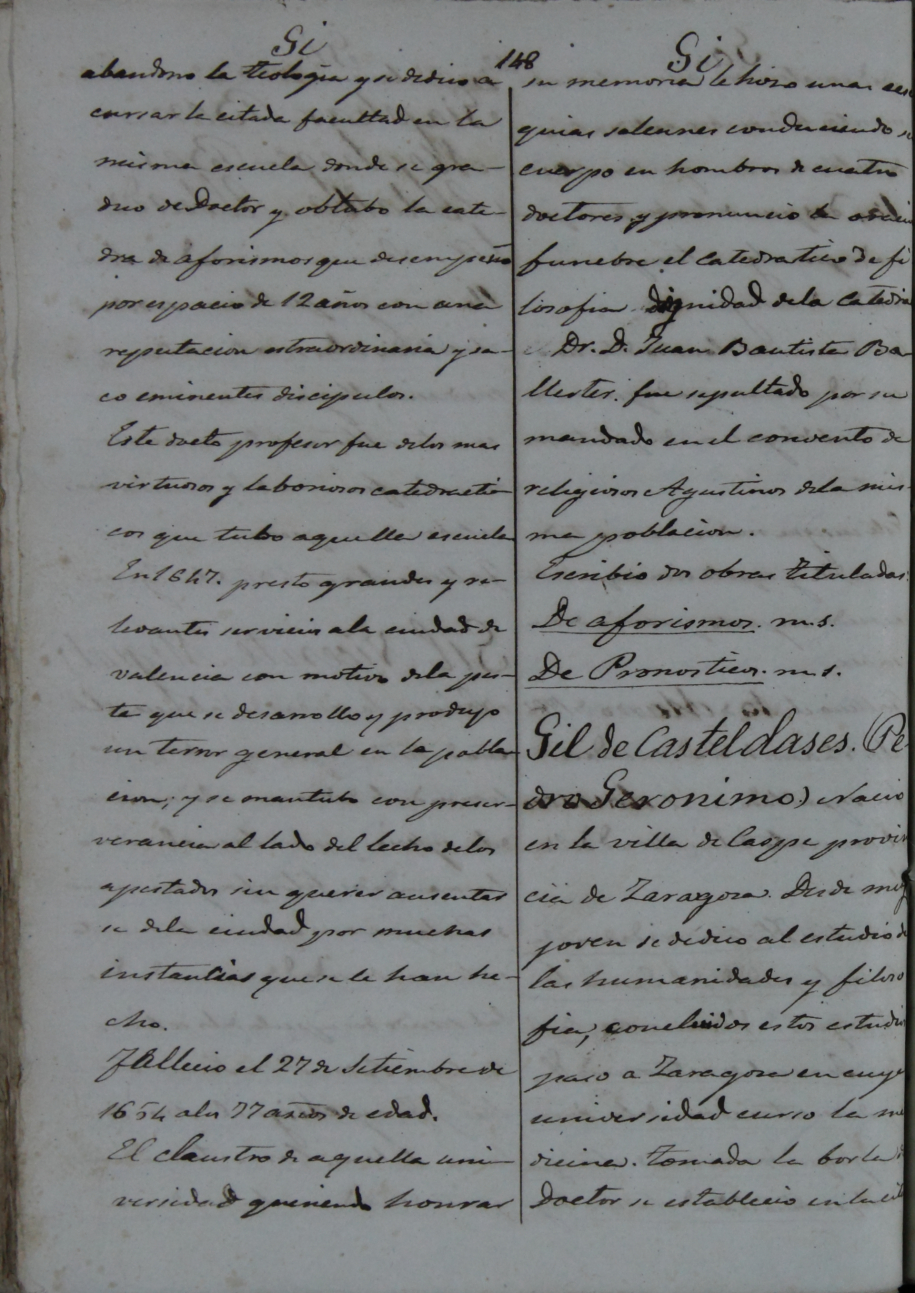 Gi
148
Gi
abandono la teologia y se dedico a
cursar la citada facultad en la
misma escuela donde se gra-
duo de Doctor y obtubo la cate-
dra de aforismos que desempeño
por espacio de 12 años con una
reputacion estraordinaria y sa-
co eminentes discipulos.
Este docto profesor fue delos mas
virtuosos y laboriosos catedrati-
cos que tubo aquella escuela
En 1647. presto grandes y re-
levantes servicios ala ciudad de
valencia con motivo dela pes-
te que se desarrollo y produjo
un terror general en la pobla
cion; y se mantubo con preser-
verancia al lado del lecho delos
apestados sin querer ausentar
se dela ciudad por muchas
instancias que se le han he-
cho.
Fallecio el 27 de Setiembre de
1654 alos 77 años de edad.
El claustro de aquella uni-
versidad queriendo honrar
su memoria le hizo unas
quias solennes conduciendo
cuerpo en hombros de cuatro
doctores y pronuncio la
funebre el catedratico de fi
losofia dignidad dela
Dr. D. Juan Bautista Ba-
llester. fue sepultado por su
mandado en el convento de
religiosos Agustinos dela mis-
ma poblacion.
Escribio dos obras tituladas
De aforismos. m.s.
De Pronosticos. m.s.
Gil de Casteldases. (Pe-
dro Geronimo) Nacio
en la villa de Caspe provin
cia de Zaragoza. Desde muy
joven se dedico al estudio de
las humanidades y filoso
fia; concluidos estos estudi
paso a Zaragoza en cuya
universidad curso la me
dicina. tomada la borla d
Doctor se establecio en la